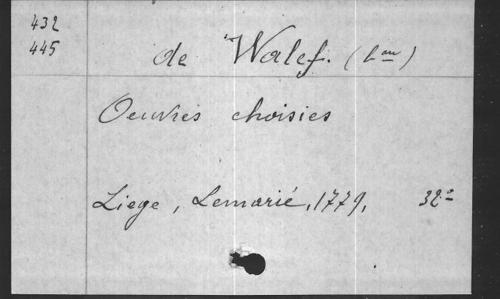 432
445
de Walef. (bon)
Oeuvres choisies
Liege, Lemarié, 1779, 32°